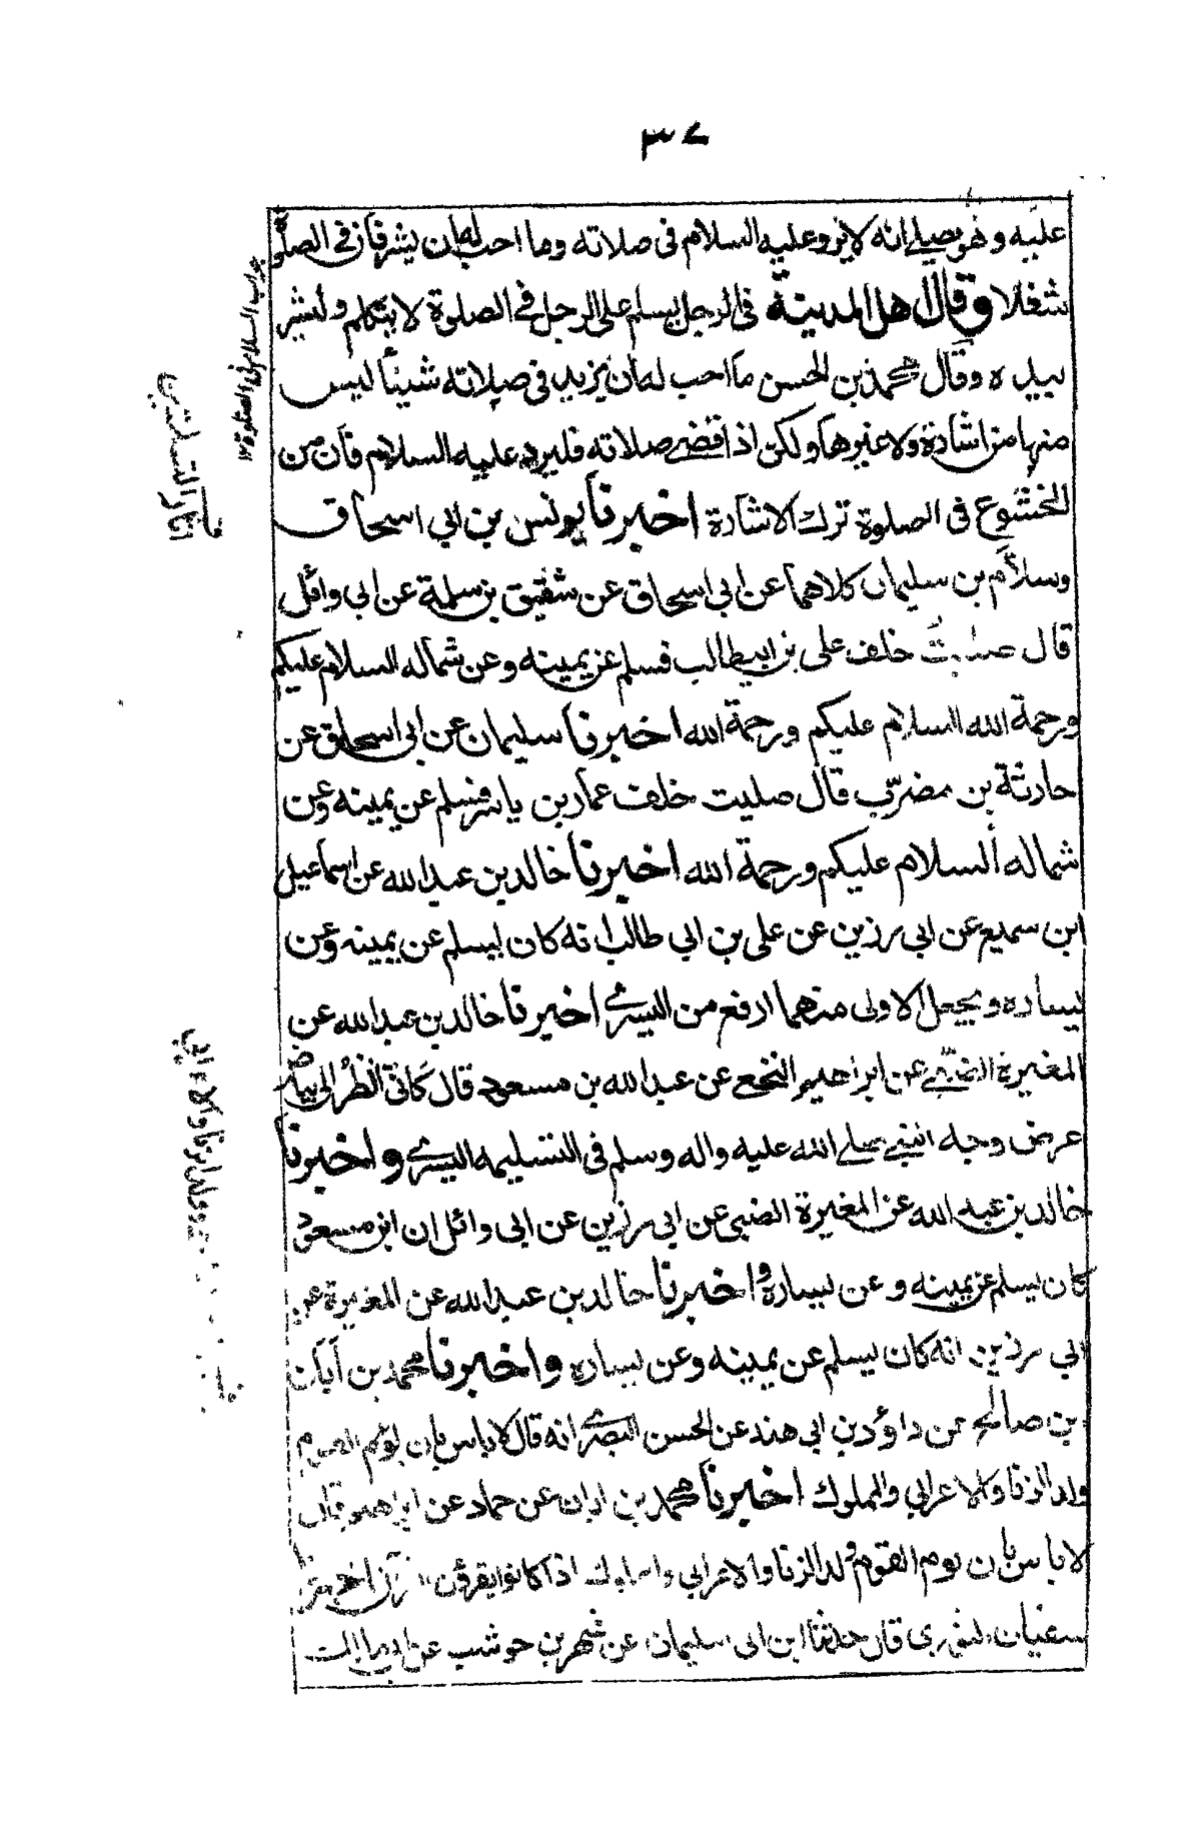 ٣٧
عليه وهو يصلي انه لا يرد عليه السلام في صلاته وما احب له ان يشير فان في الصلوة
شغلا وقال اهل المدينة في الرجل يسلم على الرجل في الصلوة لا يتكلم وليشر
بيده وقال محمد بن الحسن ما احب له ان يزيد في صلاته شيئا ليس
منها من اشارة ولا غيرها ولكن اذا قضى صلاته فليرد عليه السلام فان من
الخشوع في الصلوة ترك الاشارة اخبرنا يونس بن ابي اسحاق
وسلام بن سليمان كلاهما عن ابي اسحاق عن شقيق بن سلمة عن ابي وائل
قال صليت خلف علي بن ابيطالب فسلم عن يمينه وعن شماله السلام عليكم
ورحمة الله السلام عليكم ورحمة الله اخبرنا سليمان عن ابي اسحاق عن
حارثة بن مضرّب قال صليت خلف عمار بن ياسر فسلم عن يمينه وعن
شماله السلام عليكم ورحمة الله اخبرنا خالد بن عبد الله عن اسماعيل
ابن سميع عن ابي رزين عن علي بن ابي طالب انه كان يسلم عن يمينه وعن
يساره ويجعل الاولى منهما ارفع من اليسرى اخبرنا خالد بن عبد الله عن
المغيرة الضبّي عن ابراهيم النخعي عن عبد الله بن مسعود قال كاني انظر الى بياض
عرض وجه النبي صلى الله عليه واله وسلم في التسليمه اليسرى واخبرنا
خالد بن عبد الله عن المغيرة الضبي عن ابي رزين عن ابي وائل ان ابن مسعود
كان يسلم عن يمينه وعن يساره واخبرنا خالد بن عبد الله عن المغيرة عن
ابي رزين انه كان يسلم عن يمينه وعن يساره واخبرنا محمد بن ابان
بن صالح عن داؤد بن ابي هند عن الحسن البصرى انه قال لا باس بان يؤم القوم
ولد الزنا والاعرابي والمملوك اخبرنا محمد بن ابان عن حماد عن ابراهيم قال
لا باس بان يوم القوم ولد الزنا والاعرابي والمملوك اذا كانوا يقرؤن القرآن اخبرنا
سفيان الثوري قال حدثنا ابن ابي سليمان عن شهر بن حوشب عن ابي مالك
جواب السلام في الصلوة ١٢
اثار التسليمتين